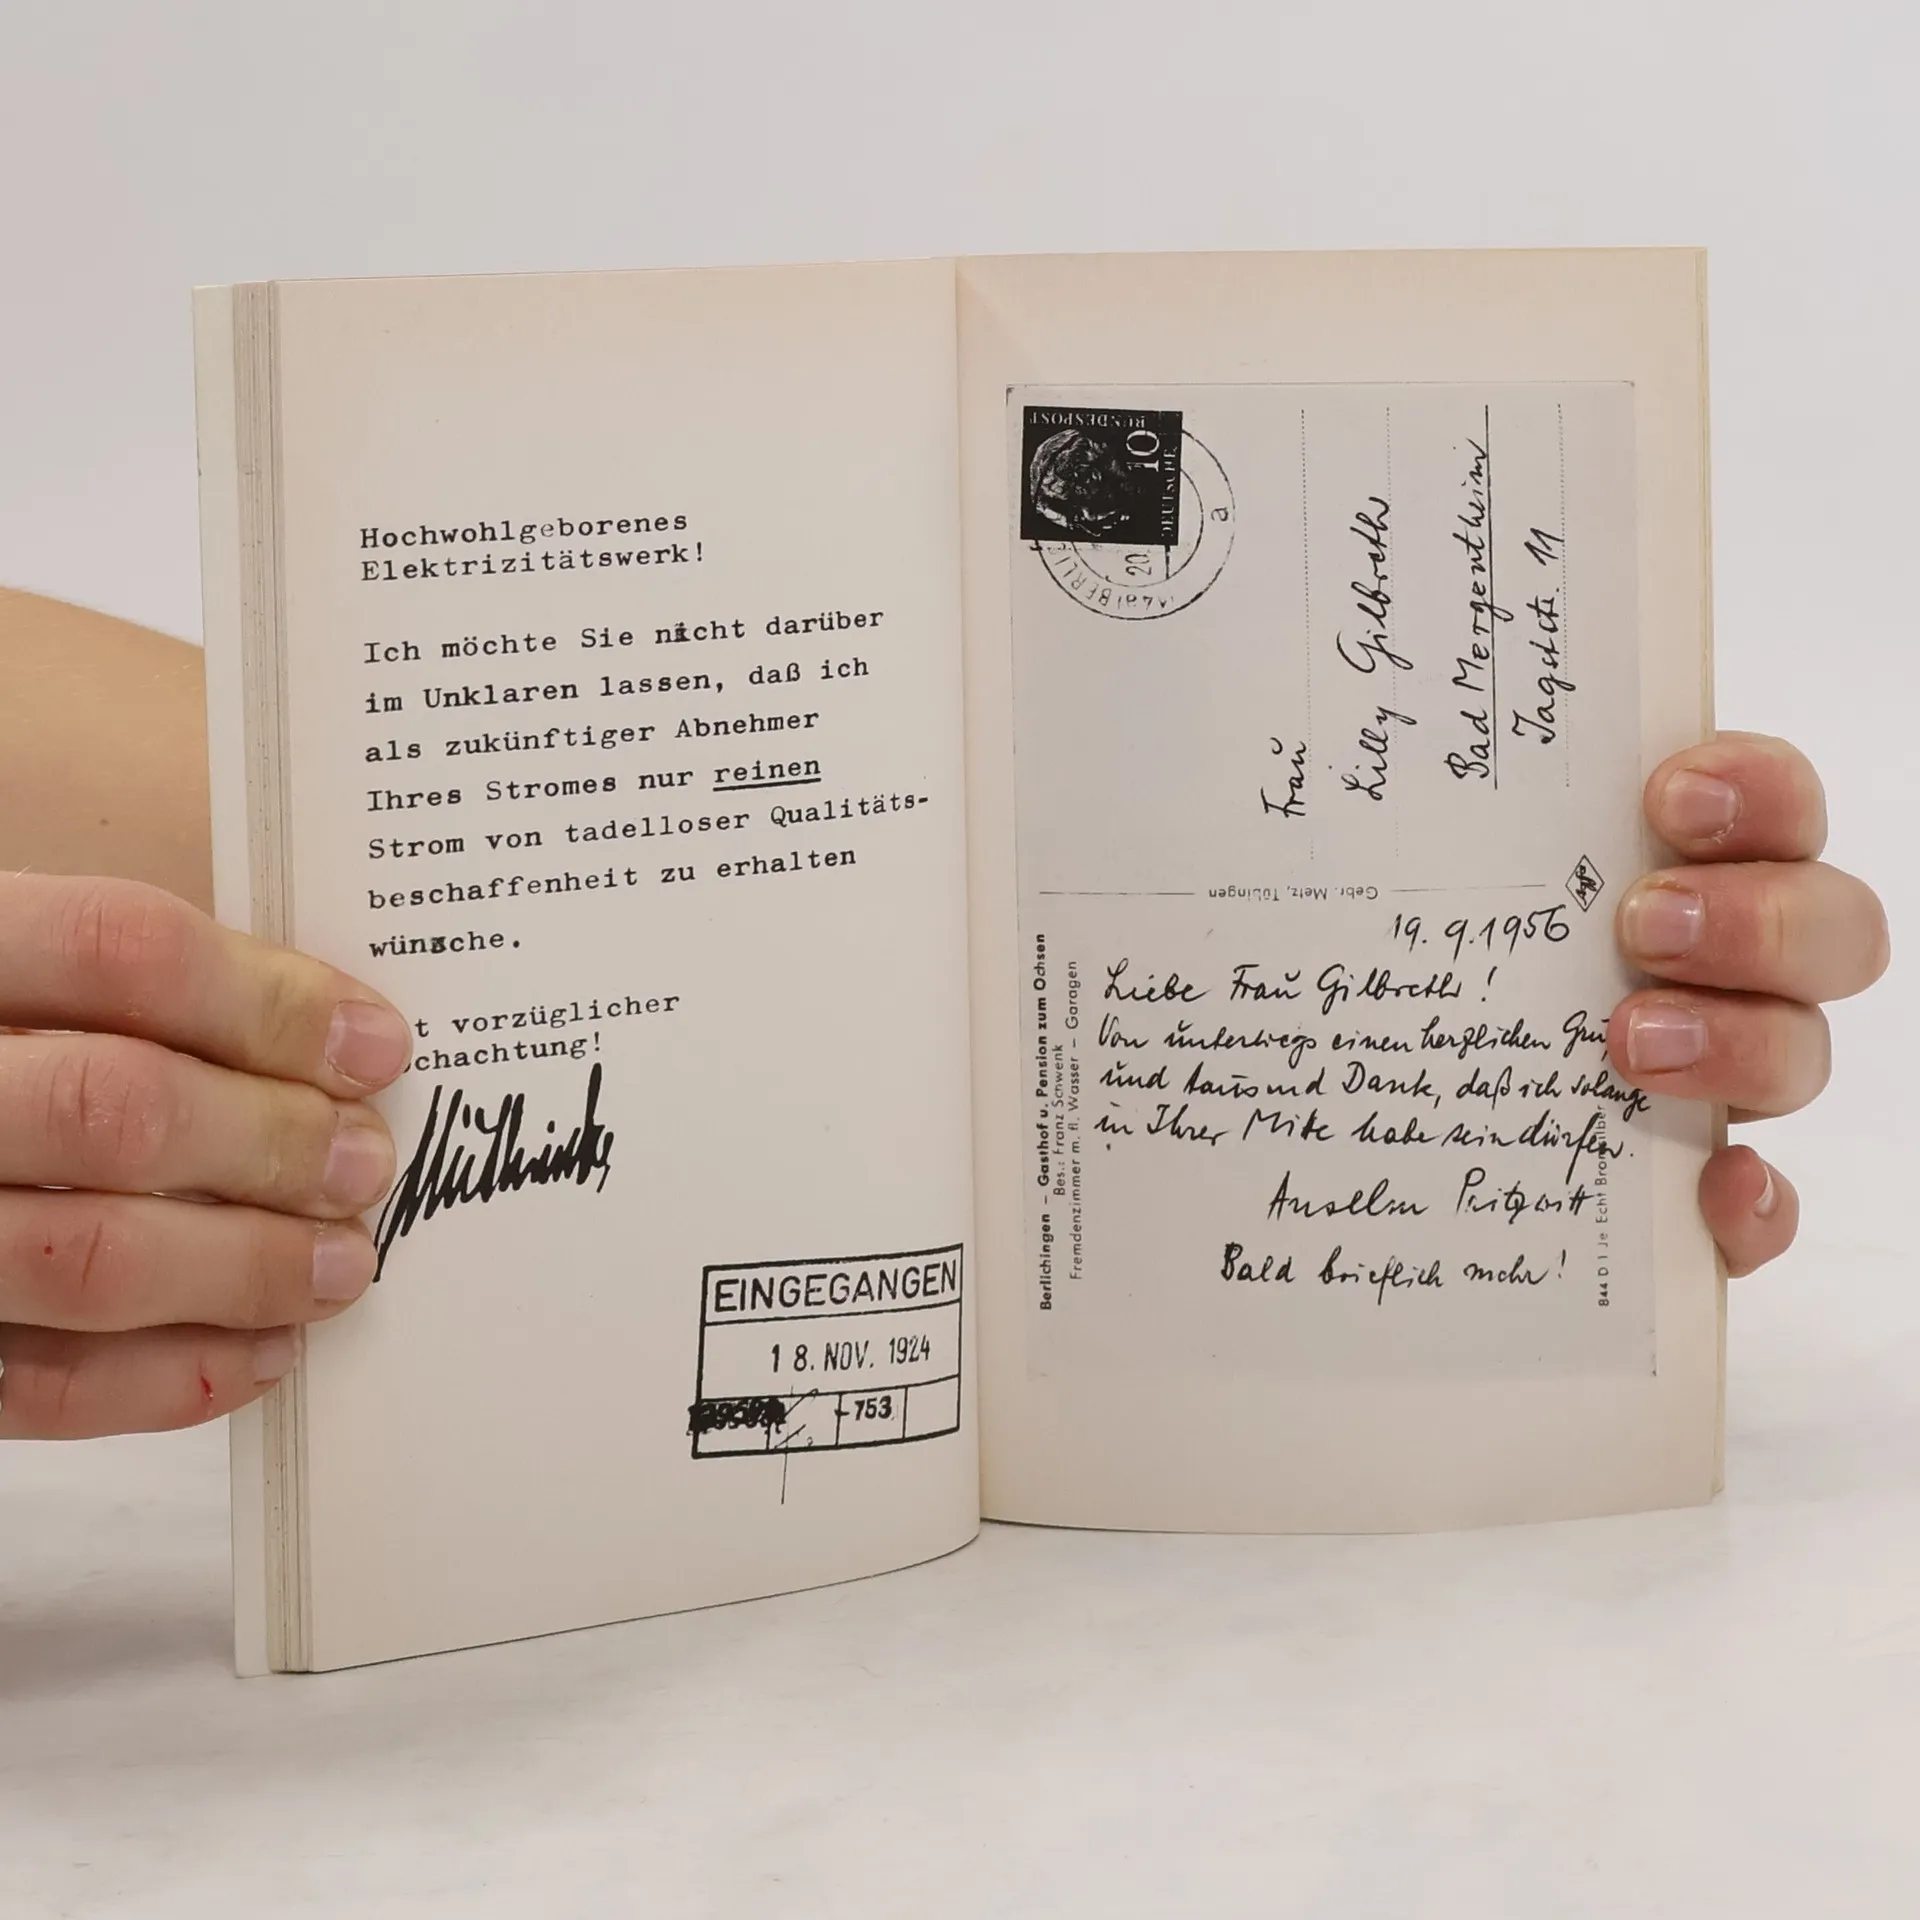 Hochwohlgeborenes
Elektrizitätswerk!
Ich möchte Sie nicht darüber
im Unklaren lassen, daß ich
als zukünftiger Abnehmer
Ihres Stromes nur reinen
Strom von tadelloser Qualitäts-
beschaffenheit zu erhalten
wünsche.
t vorzüglicher
chachtung!
EINGEGANGEN
18. NOV. 1924
-753
DEUTSCHE
BUNDESPOST
10
BERLIN
20
a
Frau
Lilly Gilbreth
Bad Mergentheim
Jagststr. 11
Gebr. Metz, Tübingen
Berlichingen – Gasthof u. Pension zum Ochsen
Bes.: Franz Schwenk
Fremdenzimmer m. fl. Wasser – Garagen
19. 9. 1956
Liebe Frau Gilbreth!
Von unterwegs einen herzlichen Gru
und tausend Dank, daß ich solange
in Ihrer Mitte habe sein dürfen.
Anselm Pritzwitt
Bald brieflich mehr!
844 D 1 Je Echt Bromsilber